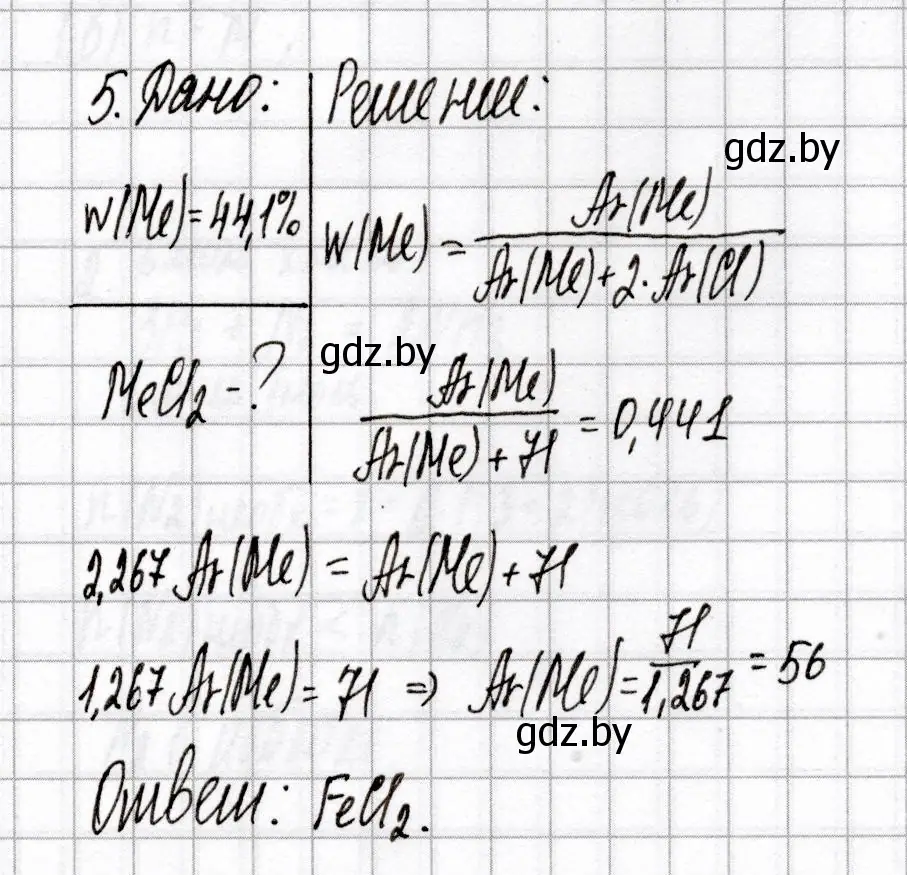 5. Дано:
w(Me) = 44,1%
MeCl₂ - ?
Решение:
gdz.by
w(Me) = Ar(Me) / (Ar(Me) + 2·Ar(Cl))
gdz.by
Ar(Me) / (Ar(Me) + 71) = 0,441
2,267 Ar(Me) = Ar(Me) + 71
1,267 Ar(Me) = 71 ⇒ Ar(Me) = 71 / 1,267 = 56
gdz.by
Ответ: FeCl₂.